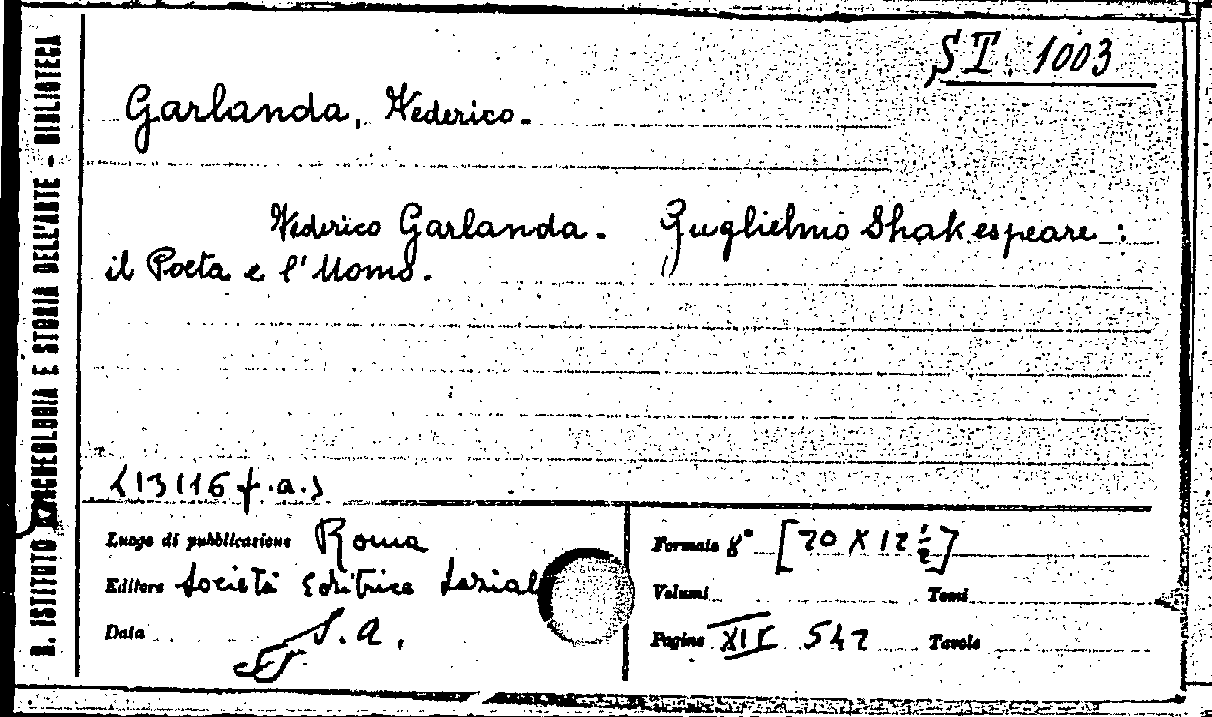 R. ISTITUTO D'ARCHEOLOGIA E STORIA DELL'ARTE - BIBLIOTECA
ST. 1003
Garlanda, Federico.
Federico Garlanda. Guglielmo Shakespeare:
il Poeta e l'Uomo.
(13116 f.a.)
Luogo di pubblicazione Roma
Editore Società Editrice Lazial
Data S. a.
Formato 8° [20 X 12 ½]
Volumi Tomi
Pagine XII 542 Tavole